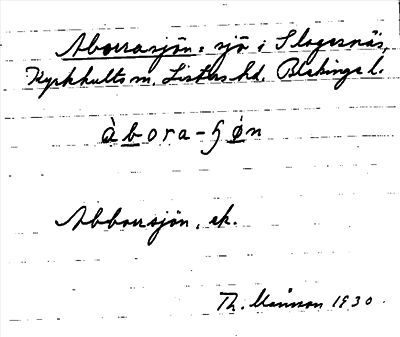 Aborrasjön: sjö i Slagesnäs,
Kyrkhults sn, Listers hd. Blekinge l.
àbora-ɧøn
Abborrsjön, ek.
Th. Månsson 1930